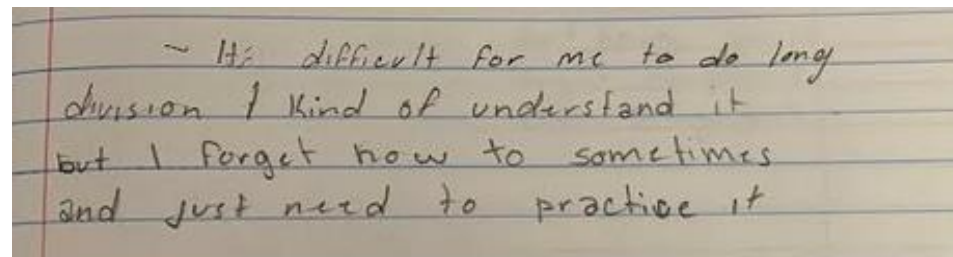 ~ Its difficult for me to do long
division I kind of understand it
but I forget how to sometimes
and just need to practice it